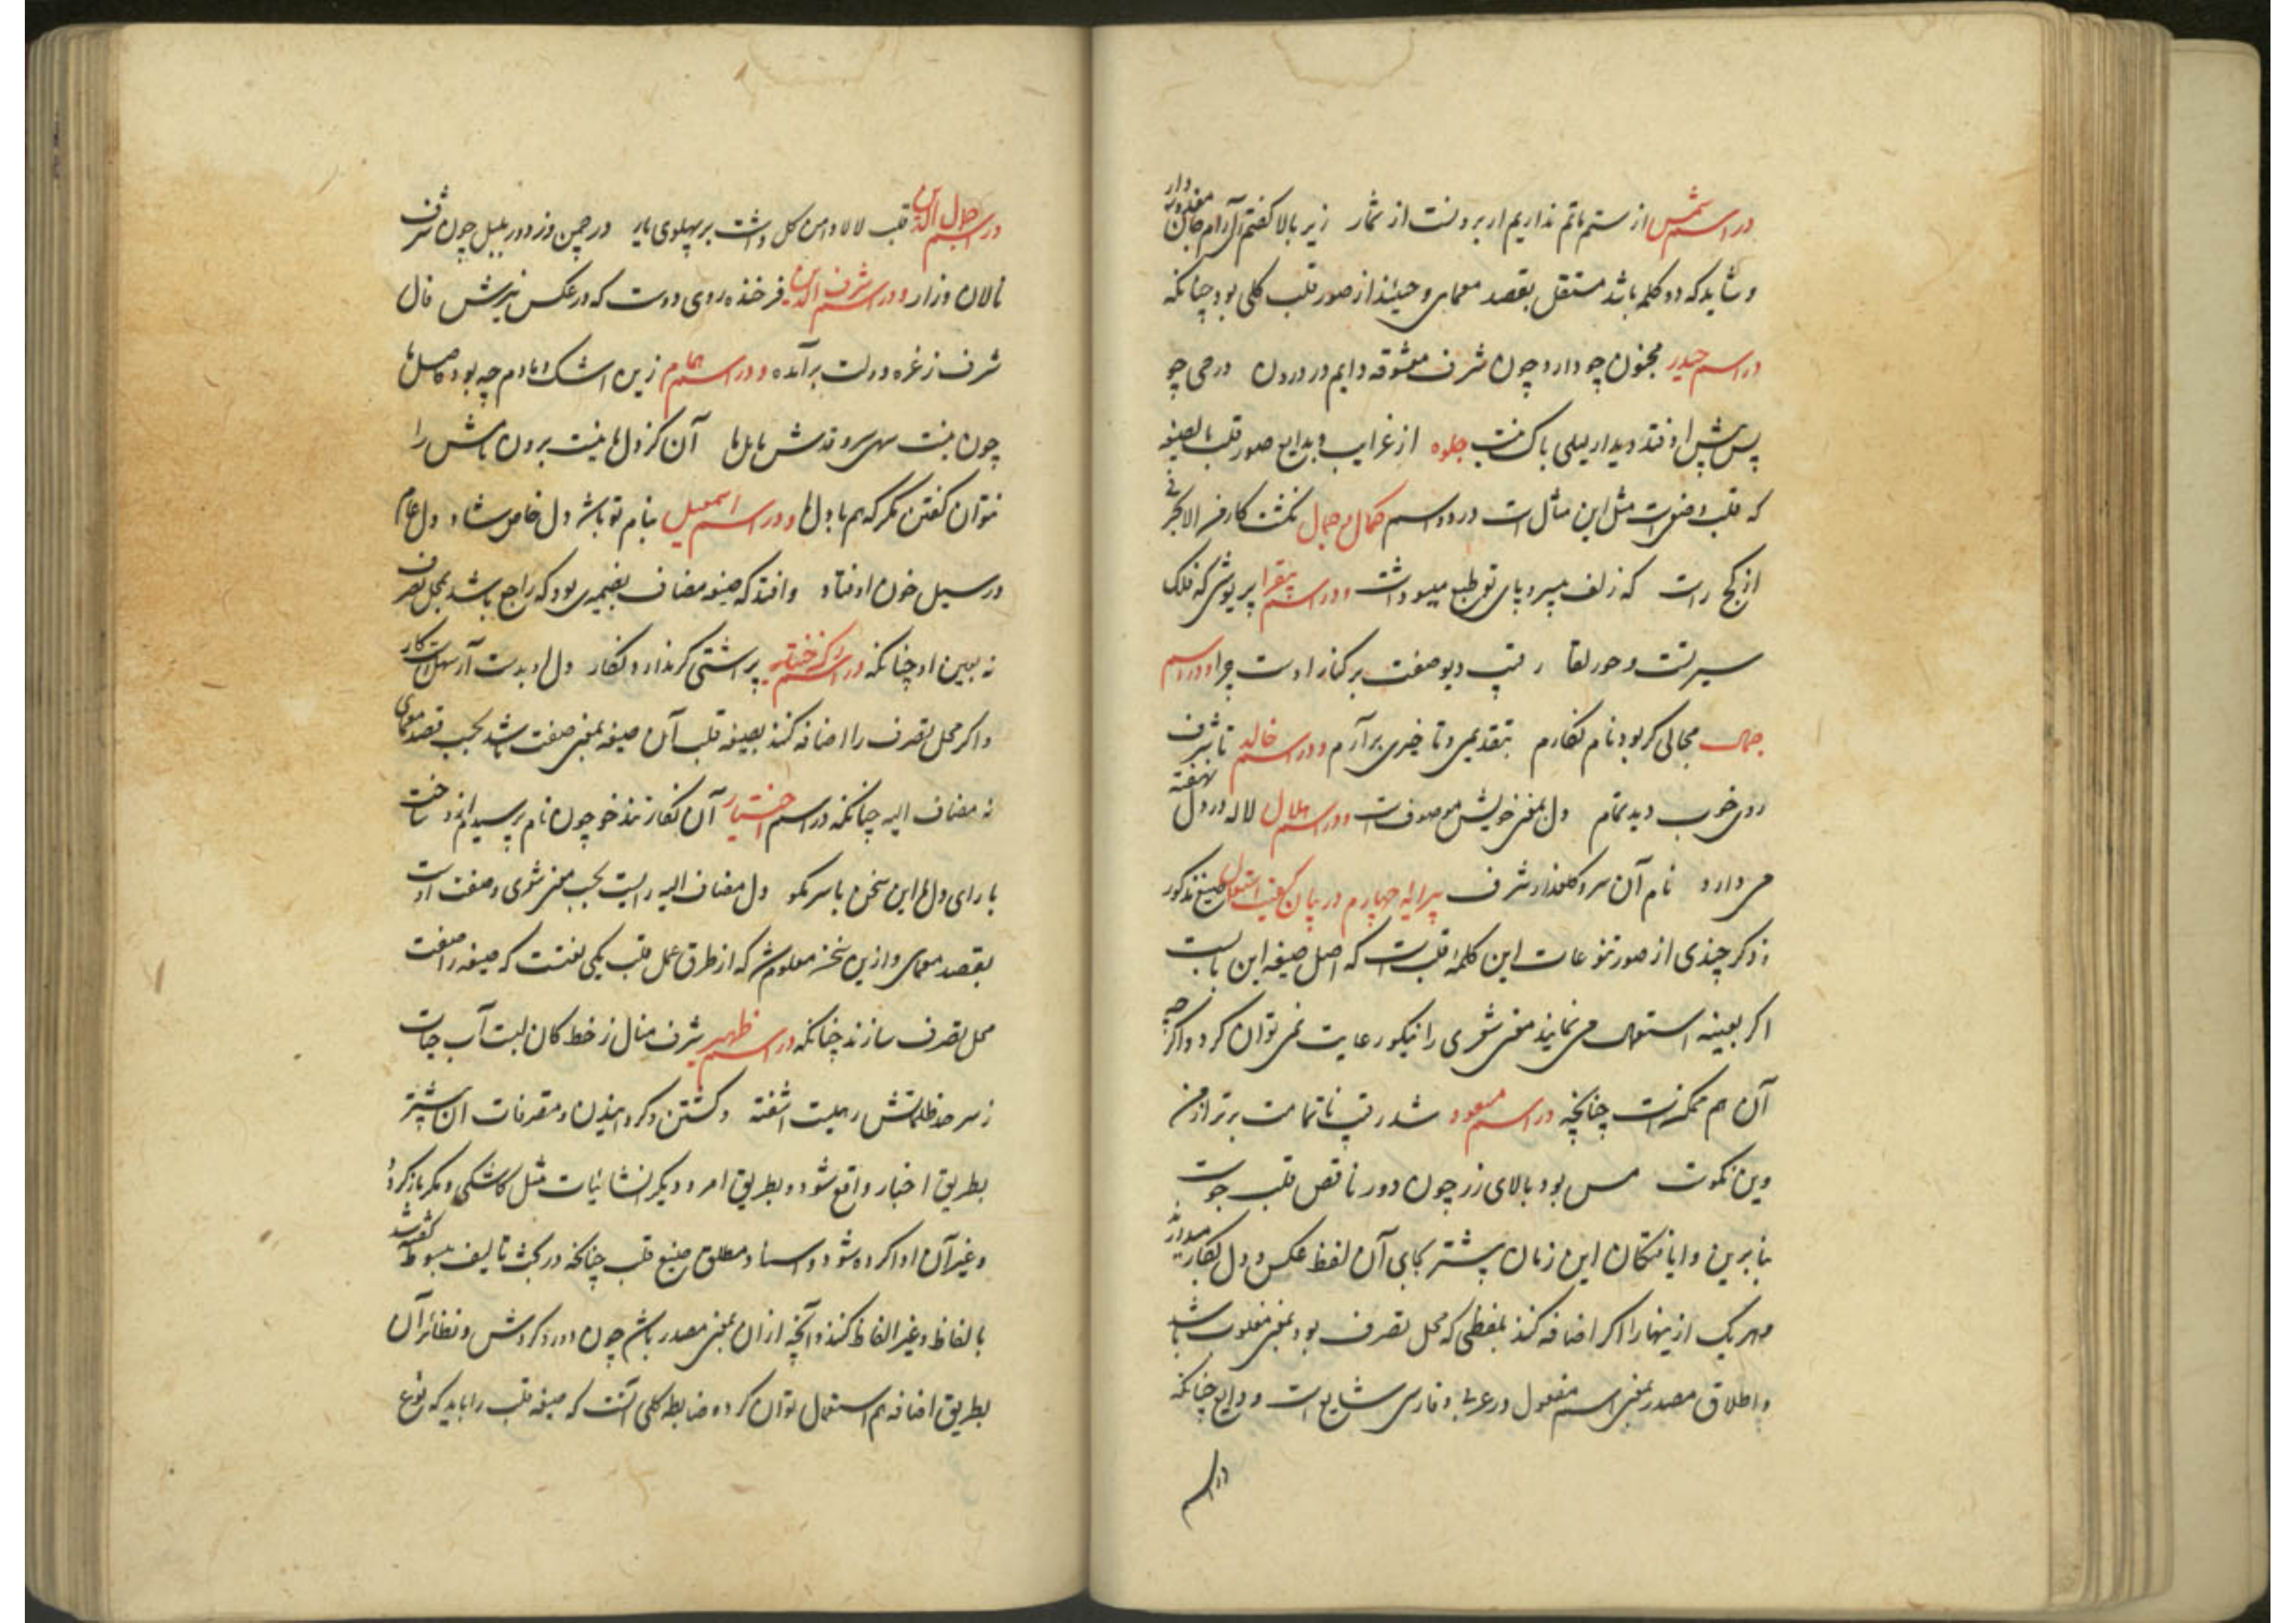 در اسم شمس از ستم ماتم نداریم ار برونست از شمار زیر بالا گفتم آن آرام جان
و شاید که دو کلمه باشد مستقل بقصد معمای و حینئذ از صور قلب کلی بود چنانکه
در اسم حیدر مجنون چو دارد چون شرف معشوقه دایم در درون در حی چو
پس پیش اوفتد دیدار لیلی باک نیست جلوه از غرایب و بدایع صور قلب
که قلب و صفی است مثل این مثال است در دو اسم کمال و جمال
از کج راست که زلف سپرد پای تو و در اسم پری وشی که فلک
سیرتست و حور لقا رقیب دیو صفت بر کنار اوست چرا و در اسم
جمال مجالی گر بود نام نگارم بتقدیمی و تاخیری برآرم و در اسم خالد تا شرف
روی خوب دید تمام دل بمعنی خویش موصوفست و در اسم بلال لاله در دل نهفته
می دارد نام آن سرو گلعذار شرف پیرایه چهارم در بیان کیفیت استعمال صیغ مذکور
ذکر چندی از صور تنوعات این کلمه قلب است که اصل صیغه این بابست
اگر بعینه استعمال می نمایند معنی شعری را نیکو رعایت نمی توان کرد و اگر چه
آن هم ممکنست چنانچه در اسم مسعود شد رقیب ناتمامت برتر از من
وین نکوست مس بود بالای زر چون دور ناقص قلب جوست
بنابرین و ایافتگان این زمان بیشتر بجای آن لفظ عکس و دل بکار میدارند
و هر یک ازینها را اگر اضافه کنند بلفظی که محل تصرف بود بمعنی مقلوب باشد
و اطلاق مصدر بمعنی اسم مفعول در عربی و فارسی شایع است و ذایع چنانکه
در اسم
در اسم جلال الدین قلب لالا دامن گل داشت بر پهلوی یار در چمن وز دور بلبل چون شرف
نالان و زار و در اسم شرف الدین فرخنده روی دوست که در عکس نیرش فال
شرف ز غره دولت برآمده و در اسم همام زین اشک دمادم چه بود حاصل ما
چون نیست سهی سرو قدش مایل ما آن کز دل ما نیست برون نامش را
نتوان گفتن مگر که هم با دل ما و در اسم اسمعیل بنام تو باشد دل خاص شاد و دل عام
در سیل خون اوفتاد و افتد که صیغه مضاف بضمیری بود که راجع باشد بمحل تصرف
نه بعین او چنانکه در اسم پر اشتی گر ندارد نگار دل او بدست آر سهل است کار
و اگر محل تصرف را اضافه کنند بصیغه قلب آن صیغه بمعنی صفت باشد بحسب قصد معمای
نه مضاف الیه چنانکه در اسم اختیار آن نگار تند خو چون نام پرسیدم ازو ساخت
با رای دلم این سخن با سر مگو دل مضاف الیه رایست بحسب معنی شعری و صفت اوست
بقصد معمای و ازین سخن معلوم شد که از طرق عمل قلب یکی آنست که صیغه را صفت
محل تصرف سازند چنانکه در اسم ظهیر شرف منال ز خط کان لبت آب حیات
ز سر حد ظلماتش رهیست اشفته و گشتن و گردانیدن و متصرفات آن بیشتر
بطریق اخبار واقع شود و بطریق امر و دیگر انشائیات مثل کاشکی و مگر باز گردد
و غیر آن ادا کرده شود و اسناد مطلق صیغ قلب چنانچه در بحث تالیف مبسوط گفته شد
بالفاظ و غیر الفاظ کنند و آنچه از آن بمعنی مصدر باشد چون دور و گردش و نظائر آن
بطریق اضافه هم استعمال توان کرد و ضابط کلی آنست که صیغه قلب را باید که نوع